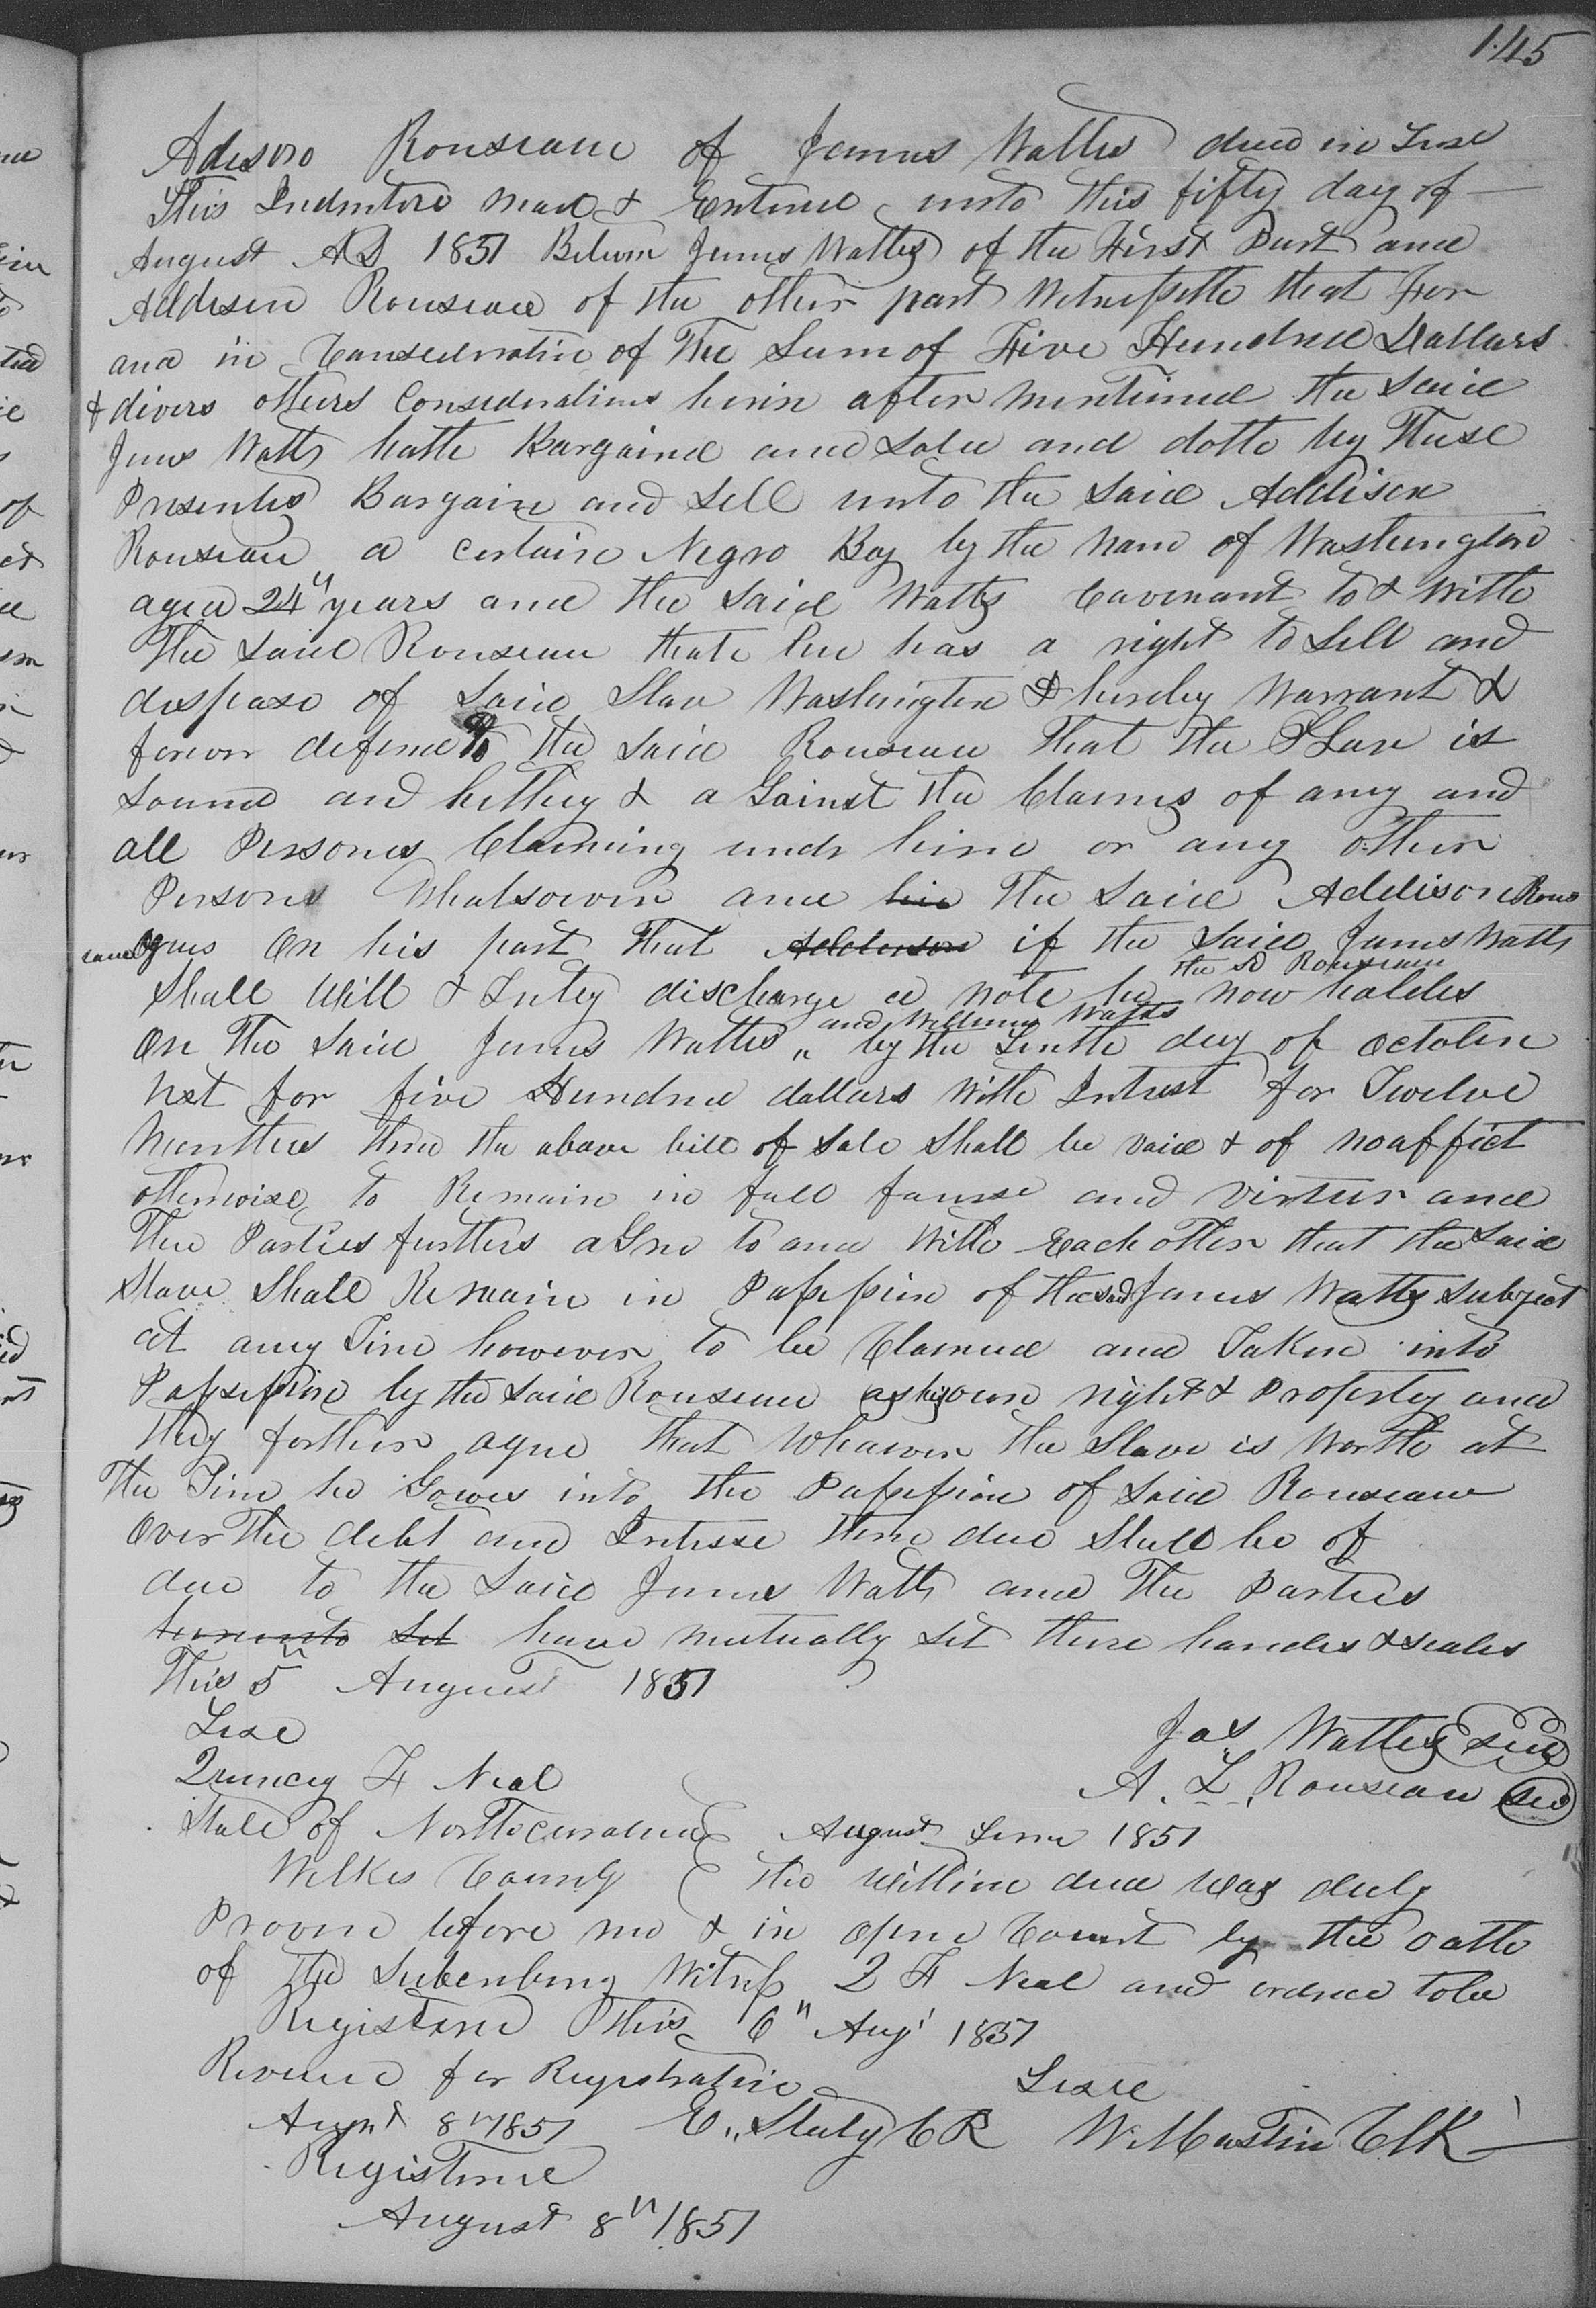 145
Adison Rouseau of James Watts deed in Trust
This Indenture mad & Entered unto this fifty day of
August AD 1851 Betwen James Watts of the First Part and
Addison Rouseau of the other part Witnesseth that For
and in Consideration of The Sum of Five Hundred Dollars
& divers others Considerations herin after mentioned the said
James Watts hath Bargained and Sold and doth by These
Presents Bargain and Sell unto the said Addison
Rouseau a certain Negro Boy by the name of Washington
aged 24" years and the said Watts Covenant to & with
The said Rouseau that he has a right to sell and
dispose of said Slave Washington & hereby warrant &
forever defend to the said Rouseau That the Slave is
Sound and helthy & a Gainst the Claims of any and
all Persones Claiming undr him or any other
Persons Whatsoever and his The said Addison Rous
eau agrees On his part That Adderson if the said James Watts
the sd Rouseau
Shall Will & Truly discharge a note he now holdes
and William Watts
On The said James Watts " by the Tenth day of october
next for five Hundred dollars with Intrest for Twelve
Monthes then the above bill of sale shall be void & of no affect
otherwise to Remain in full fource and Virtue and
The Parties further aGree to and with Each other that the said
Slave Shall Remain in Possession of the said James Watts subject
at any Time however to be Claimed and Taken into
Possession by the said Rouseau as his own right & Property and
They forther agree that Whatever the Slave is worth at
The Time he Gowes into the Possession of said Rouseau
over The debt and Intresse then due Shall be of
due to the said James Watts and The Parties
hereunto set have mutually set there handes & seales
This 5" August 1851
Test
Jas Watts seal
Quincy F Neal
A. L. Rouseau seal
State of North carolina August Term 1851
Wilkes County The within deed was duly
Proven before me & in open Court by the oath
of the Subcribing Witness Q F Neal and ordred to be
Registered This 6" Aug' 1851
Received for Registration
Teste
Augst 8" 1851 E. Staley C R W. Mastin Clk
Registered
August 8" 1851